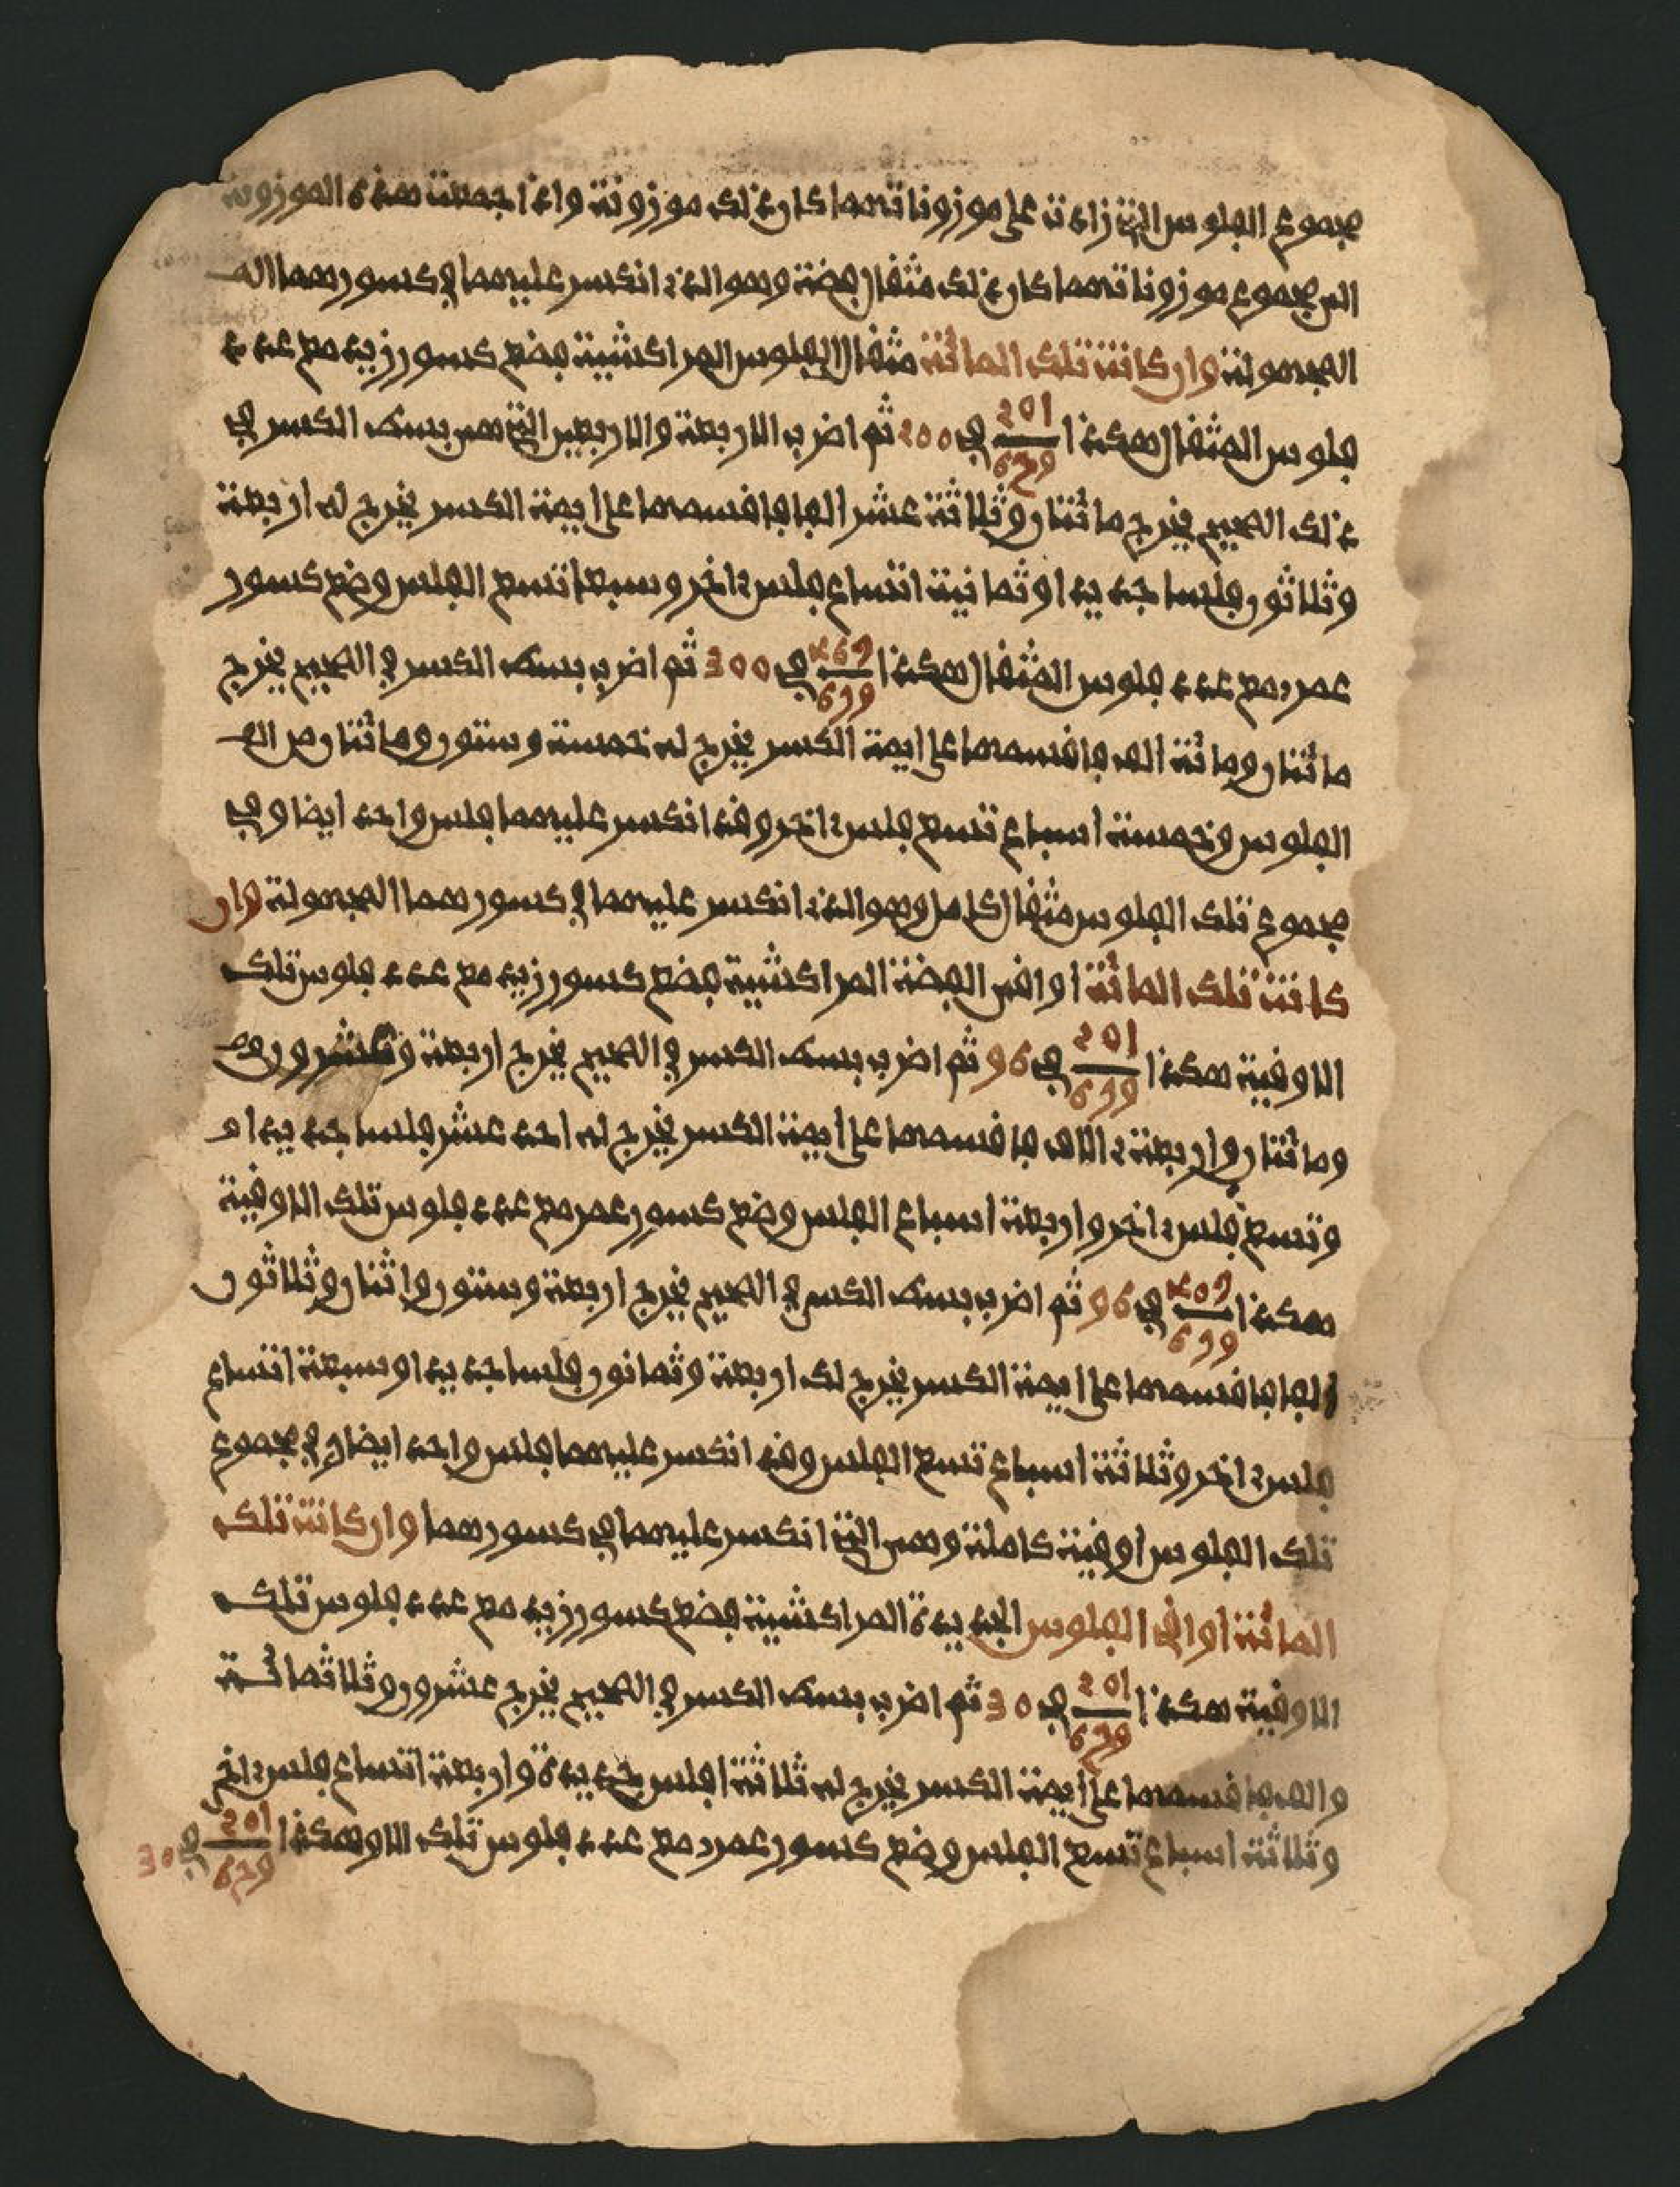 مجموع الفلوس التي زادت على موزوناتهما كان ذلك موزونة واذا جمعت هذه الموزونة
الى مجموع موزوناتهما كان ذلك مثقال فضة وهو الذي انكسر عليهما في كسورهما الصـ
المجهولة وان كانت تلك المائة مثقالا الفلوس المراكشية فضع كسور زيد مع عدد
فلوس المثقال هكذا في 200 ثم اضرب الاربعة والاربعين التي هي بسط الكسر في
ذلك الصحيح يخرج مائتان وثلاثة عشر الفا فاقسمها على ايمة الكسر يخرج له اربعة
وثلاثون فلسا جديدا وثمانية اتساع فلس اخر وسبعا تسع الفلس وضع كسور
عمر ومع عدد فلوس المثقال هكذا في 300 ثم اضرب بسط الكسر في الصحيح يخرج
مائتان ومائة الف فاقسمها على ايمة الكسر يخرج له خمسة وستون ومائتان من الـ
الفلوس وخمسة اسباع تسع فلس اخر وقد انكسر عليهما فلس واحد ايضا وفي
مجموع تلك الفلوس مثقال كامل وهو الذي انكسر عليهما في كسورهما المجهولة وان
كانت تلك المائة اواقي الفضة المراكشية فضع كسور زيد مع عدد فلوس تلك
الاوقية هكذا في 96 ثم اضرب بسط الكسر في الصحيح يخرج اربعة وعشرون
ومائتان واربعة الاف فاقسمها على ايمة الكسر يخرج له احد عشر فلسا جديدا
وتسع فلس اخر واربعة اسباع الفلس وضع كسور عمر مع عدد فلوس تلك الاوقية
هكذا في 96 ثم اضرب بسط الكسر في الصحيح يخرج اربعة وستون واثنان وثلاثون
الفا فاقسمها على ايمة الكسر يخرج لك اربعة وثمانون فلسا جديدا وسبعة اتساع
فلس اخر وثلاثة اسباع تسع الفلس وقد انكسر عليهما فلس واحد ايضا وفي مجموع
تلك الفلوس اوقية كاملة وهي التي انكسر عليهما في كسورهما وان كانت تلك
المائة اواقي الفلوس الجديدة المراكشية فضع كسور زيد مع عدد فلوس تلك
الاوقية هكذا في 30 ثم اضرب بسط الكسر في الصحيح يخرج عشرون وثلاثمائة
والف فاقسمها على ايمة الكسر يخرج له ثلاثة افلس جديدة واربعة اتساع فلس اخر
وثلاثة اسباع تسع الفلس وضع كسور عمر مع عدد فلوس تلك الاو هكذا في 30